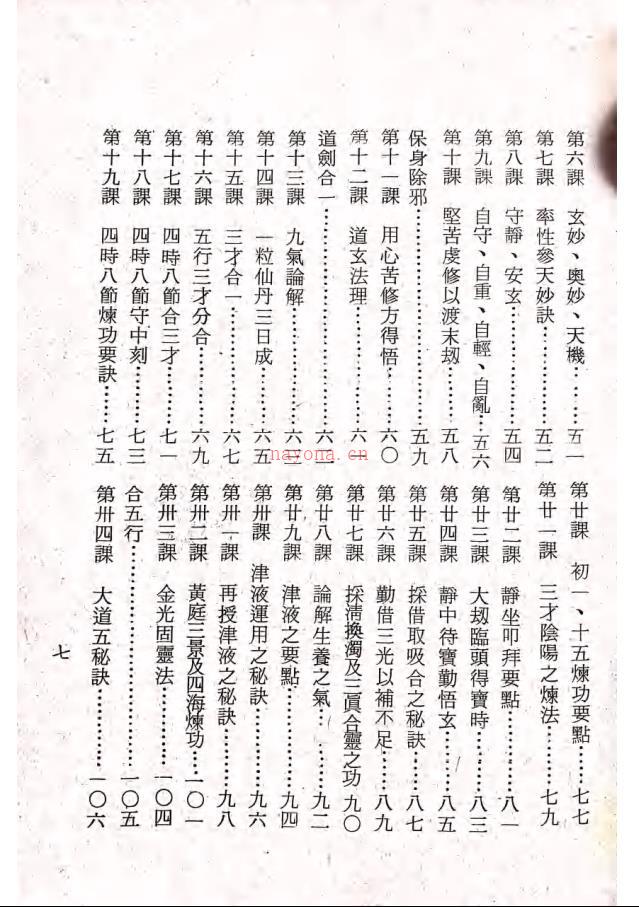 第六課　玄妙、奧妙、天機………五一
第七課　率性參天妙訣………五二
第八課　守靜、安玄………五四
第九課　自守、自重、自輕、自亂…五六
第十課　堅苦虔修以渡末刼………五八
保身除邪………五九
第十一課　用心苦修方得悟………六〇
第十二課　道玄法理………六一
道劍合一………六二
第十三課　九氣論解………六三
第十四課　一粒仙丹三日成………六五
第十五課　三才合一………六七
第十六課　五行三才分合………六九
第十七課　四時八節合三才………七一
第十八課　四時八節守中刻………七三
第十九課　四時八節煉功要訣……七五
第廿課　初一、十五煉功要點……七七
第廿一課　三才陰陽之煉法………七九
第廿二課　靜坐叩拜要點………八一
第廿三課　大刼臨頭得寶時………八三
第廿四課　靜中待寶勤悟玄………八五
第廿五課　採借取吸合之秘訣……八七
第廿六課　勤借三光以補不足……八九
第廿七課　採淸換濁及三眞合靈之功　九〇
第廿八課　論解生養之氣………九二
第廿九課　津液之要點………九四
第卅課　津液運用之秘訣………九六
第卅一課　再授津液之秘訣………九八
第卅二課　黃庭三景及四海煉功…一〇一
第卅三課　金光固靈法………一〇四
合五行………一〇五
第卅四課　大道五秘訣………一〇六
七
nayona.cn